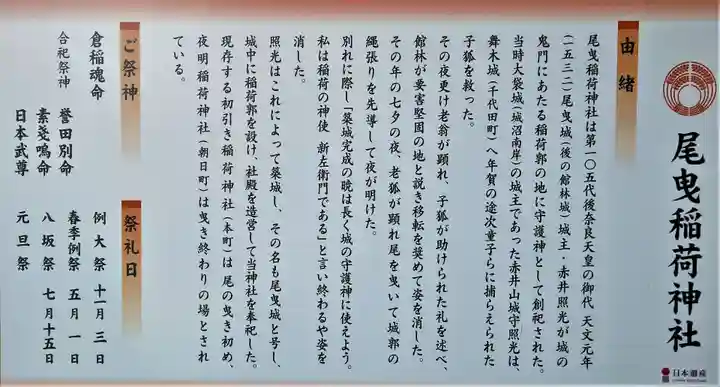 尾曳稲荷神社
由緒
尾曳稲荷神社は第一〇五代後奈良天皇の御代 天文元年
(一五三二)尾曳城(後の館林城)城主・赤井照光が城の
鬼門にあたる稲荷郭の地に守護神として創祀された。
当時大袋城(城沼南岸)の城主であった赤井山城守照光は、
舞木城(千代田町)へ年賀の途次童子らに捕らえられた
子狐を救った。
その夜更け老翁が顕れ、子狐が助けられた礼を述べ、
館林が要害堅固の地と説き移転を奨めて姿を消した。
その年の七夕の夜、老狐が顕れ尾を曳いて城郭の
縄張りを先導して夜が明けた。
別れに際し「築城完成の暁は長く城の守護神に使えよう。
私は稲荷の神使 新左衛門である」と言い終わるや姿を
消した。
照光はこれによって築城し、その名も尾曳城と号し、
城中に稲荷郭を設け、社殿を造営して当神社を奉祀した。
現存する初引き稲荷神社(本町)は 尾の曳き初め、
夜明稲荷神社(朝日町)は曳き終わりの場とされ
ている。
ご祭神
倉稲魂命
合祀祭神
誉田別命
素戔嗚命
日本武尊
祭礼日
例大祭 十一月三日
春季例祭 五月一日
八坂祭 七月十五日
元旦祭
日本遺産